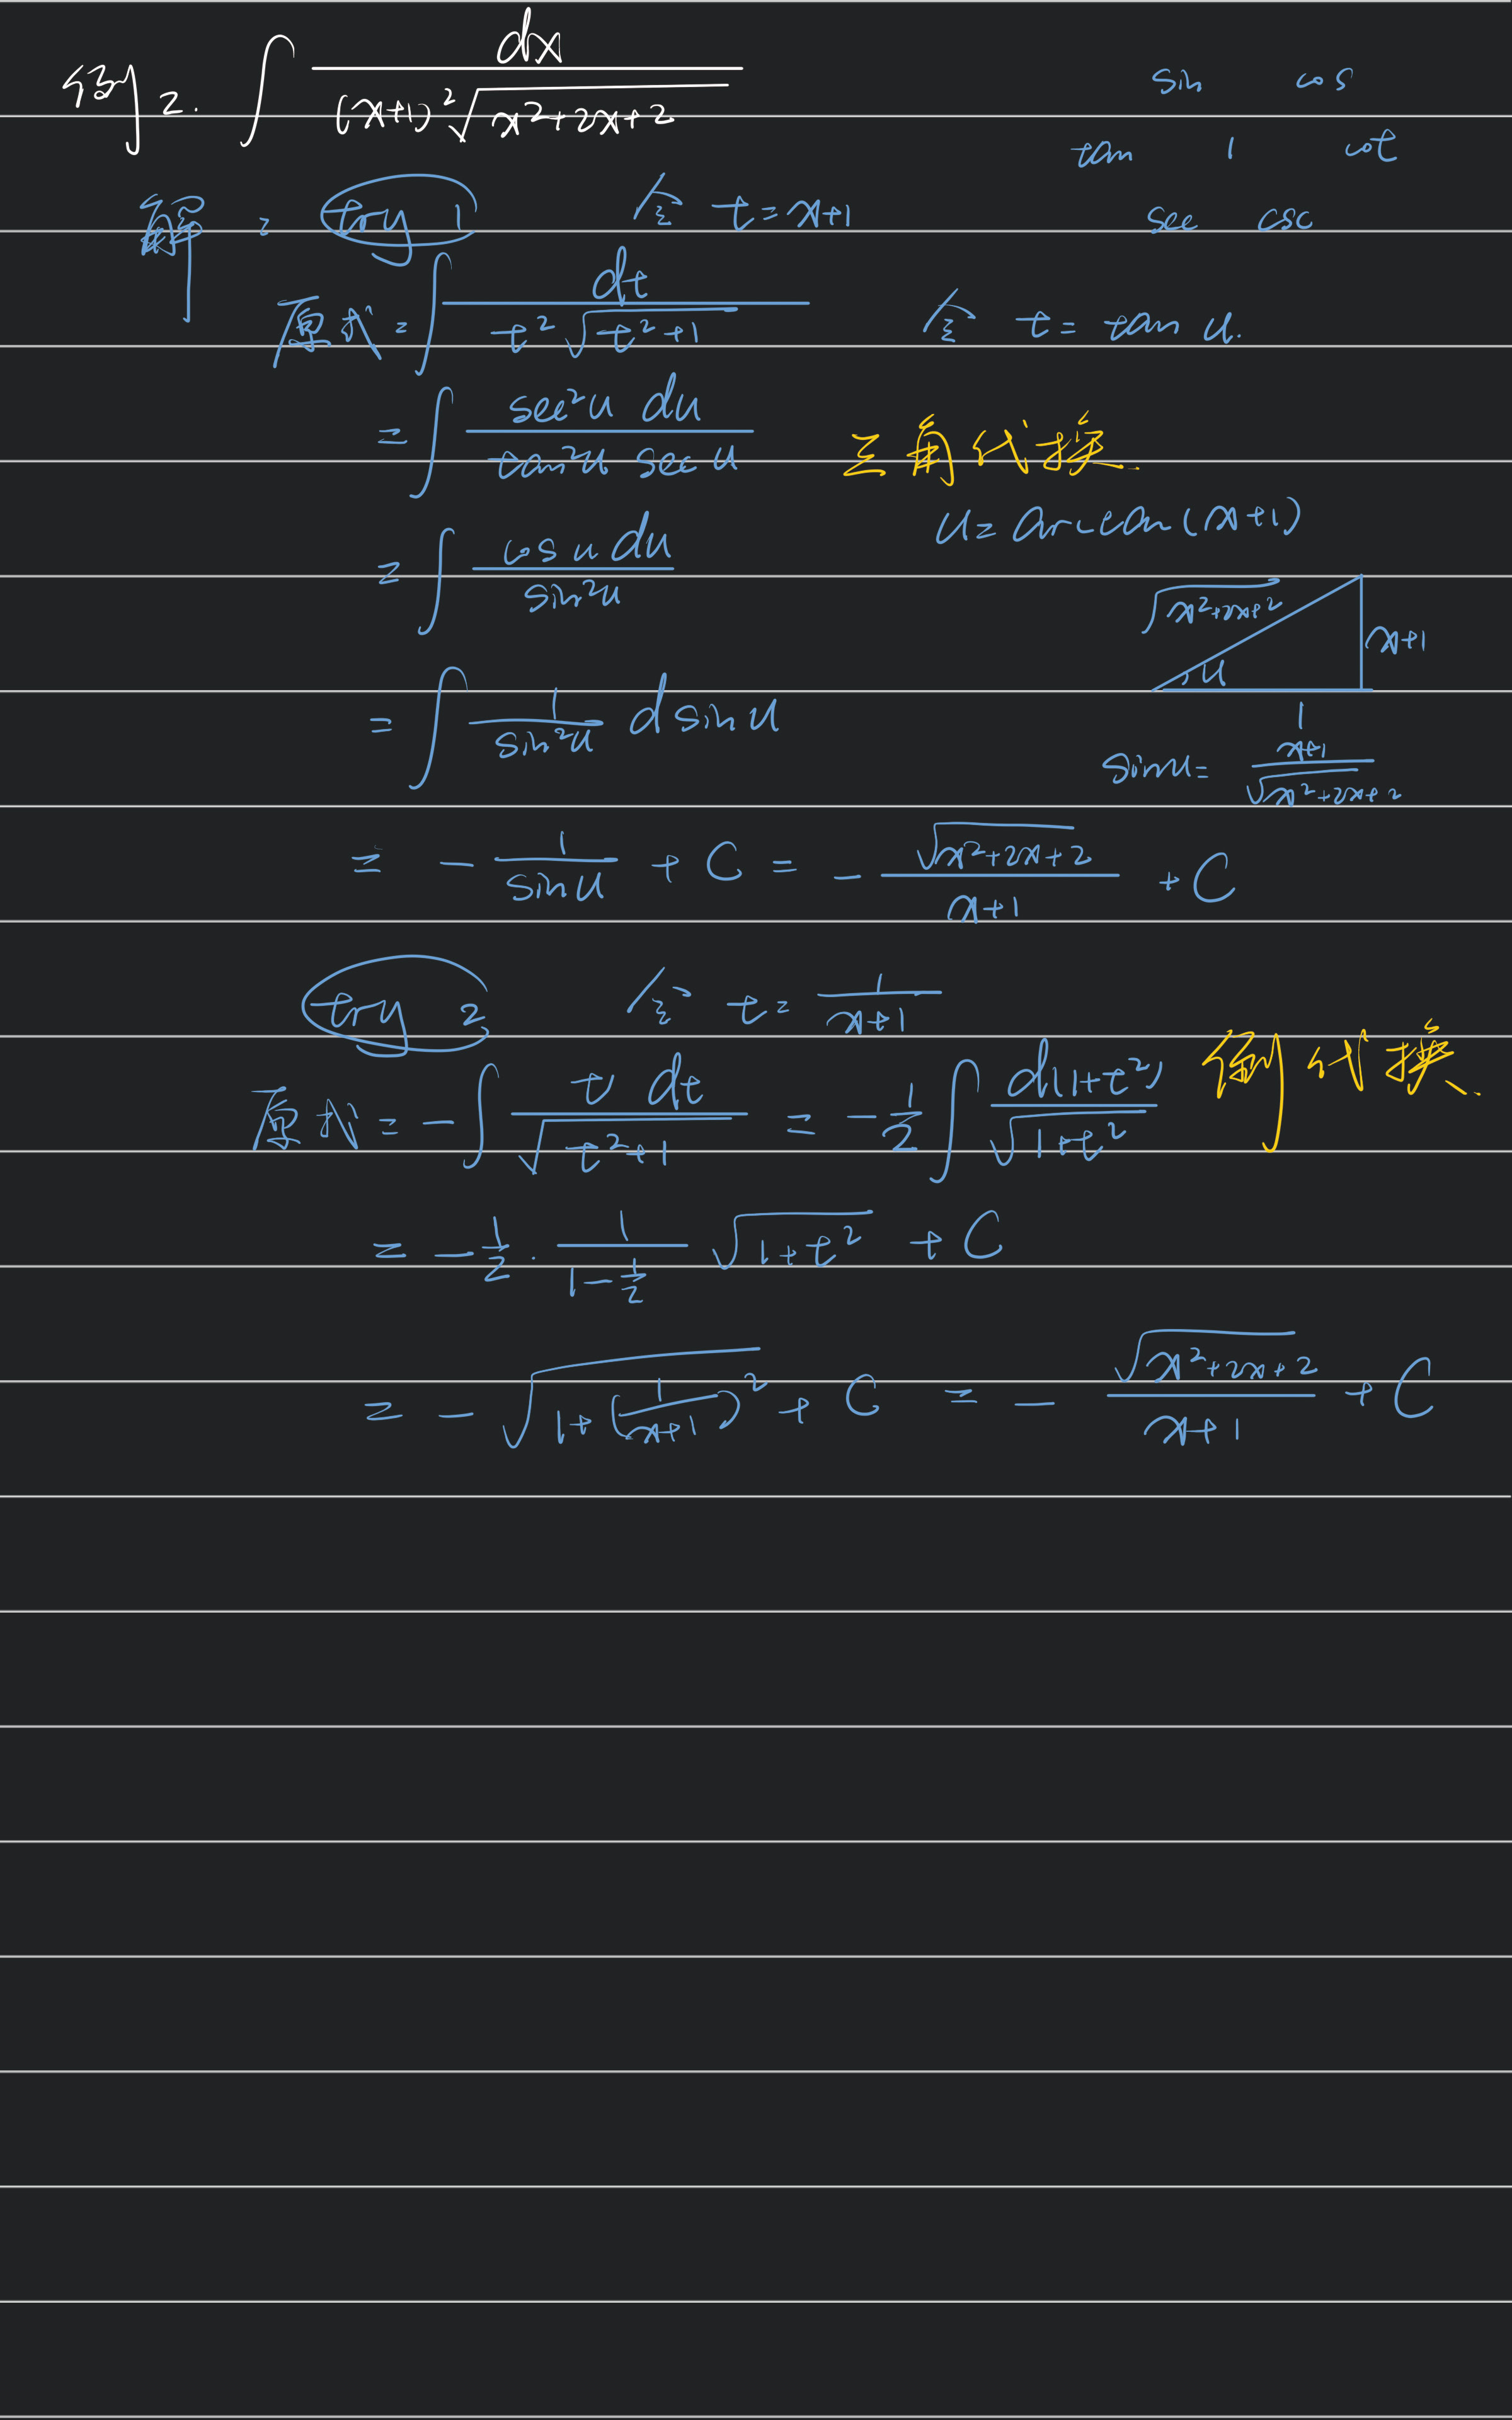 例2. ∫ dx / ((x+1)²√(x²+2x+2))
sin cos
tan 1 cot
sec csc
解: try 1 令 t=x+1
原式 = ∫ dt / (t²√(t²+1)) 令 t = tan u.
= ∫ sec²u du / (tan²u sec u) 三角代换.
u = arctan(x+1)
= ∫ cos u du / sin²u
√(x²+2x+2) x+1
u
1
= ∫ 1/sin²u d sin u
sin u = (x+1)/√(x²+2x+2)
= - 1/sin u + C = - √(x²+2x+2)/(x+1) + C
try 2 令 t = 1/(x+1)
原式 = - ∫ t dt / √(t²+1) = - 1/2 ∫ d(1+t²) / √(1+t²) 倒代换.
= - 1/2 · 1/(1-1/2) √(1+t²) + C
= - √(1+(1/(x+1))²) + C = - √(x²+2x+2)/(x+1) + C